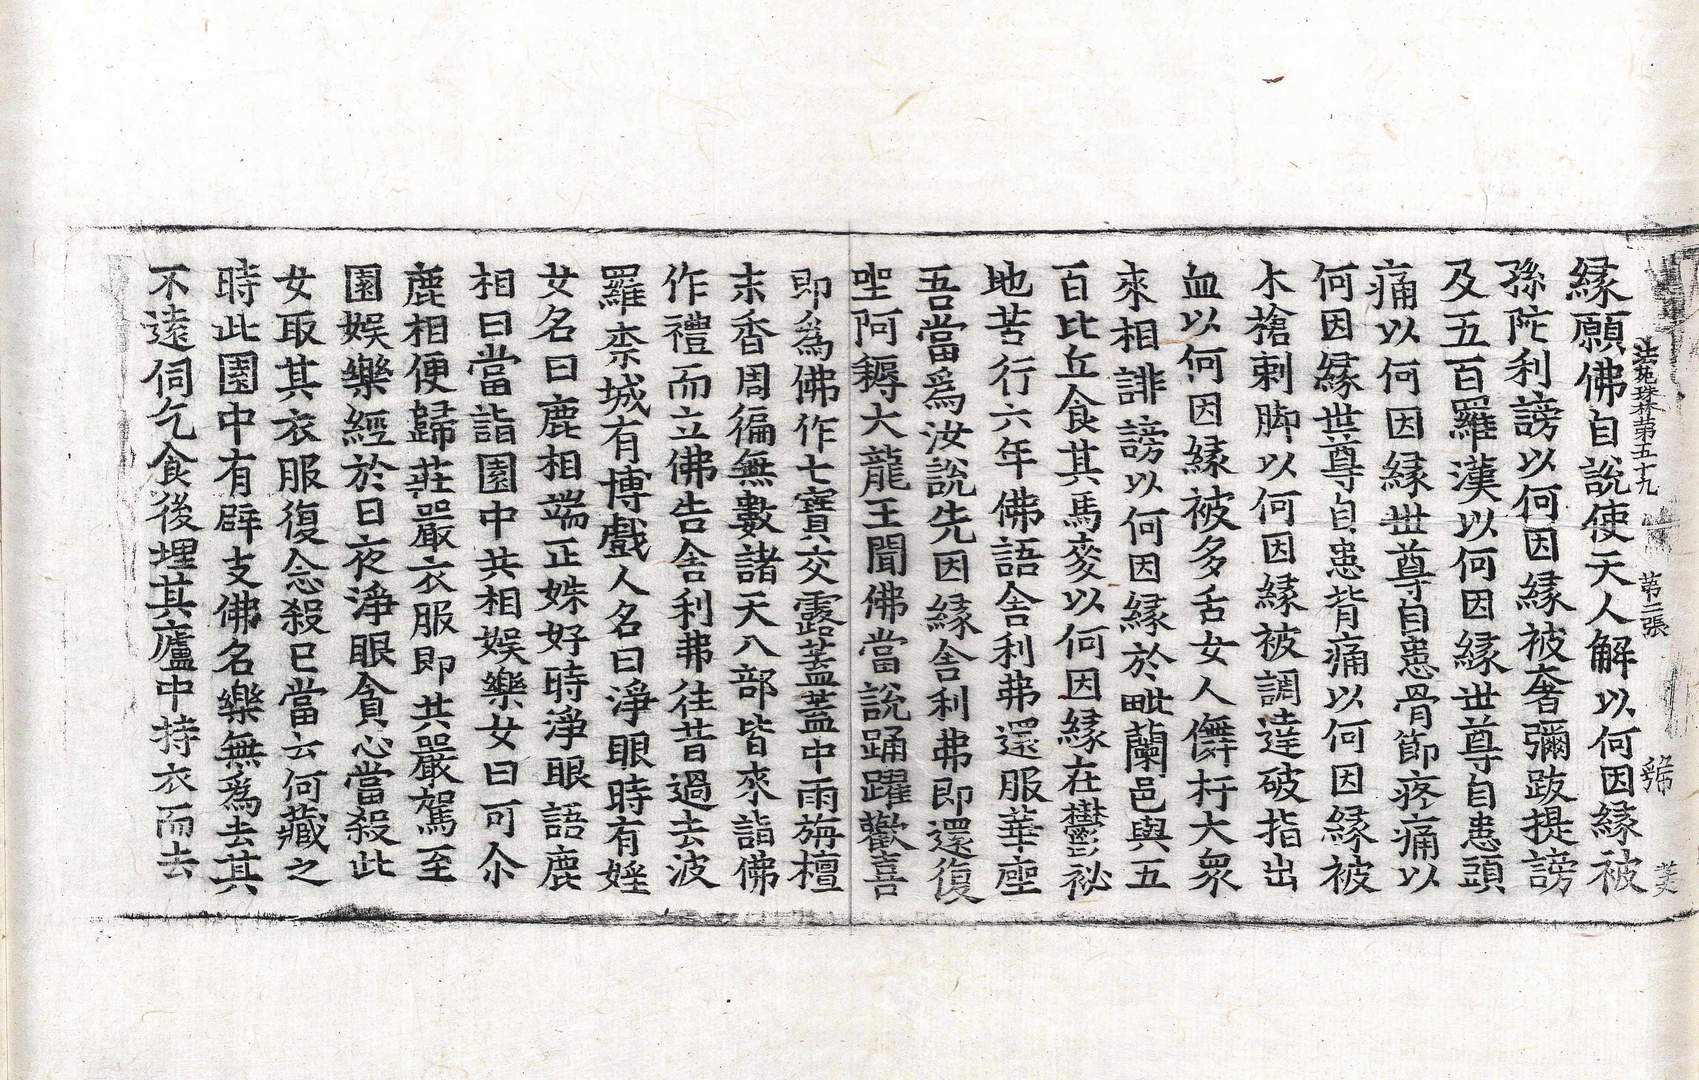 法苑珠林第五十九 第二張
緣願佛自說使天人解以何因緣被
孫陁利謗以何因緣被奢彌跋提謗
及五百羅漢以何因緣世尊自患頭
痛以何因緣世尊自患骨節疼痛以
何因緣世尊自患背痛以何因緣被
木槍刺脚以何因緣被調達破指出
血以何因緣被多舌女人儛杅大衆
來相誹謗以何因緣於毗蘭邑與五
百比丘食其馬麥以何因緣在欝祕
地苦行六年佛語舍利弗還服華座
吾當爲汝說先因緣舍利弗即還復
坐阿耨大龍王聞佛當說踊躍歡喜
即爲佛作七寶交露盖盖中雨旃檀
末香周徧無數諸天八部皆來詣佛
作禮而立佛告舍利弗往昔過去波
羅柰城有博戲人名曰淨眼時有婬
女名曰鹿相端正姝好時淨眼語鹿
相曰當詣園中共相娛樂女曰可尒
鹿相便歸莊嚴衣服即共嚴駕至
園娛樂經於日夜淨眼貪心當殺此
女取其衣服復念殺已當云何藏之
時此園中有辟支佛名樂無爲去其
不遠伺乞食後埋其廬中持衣而去